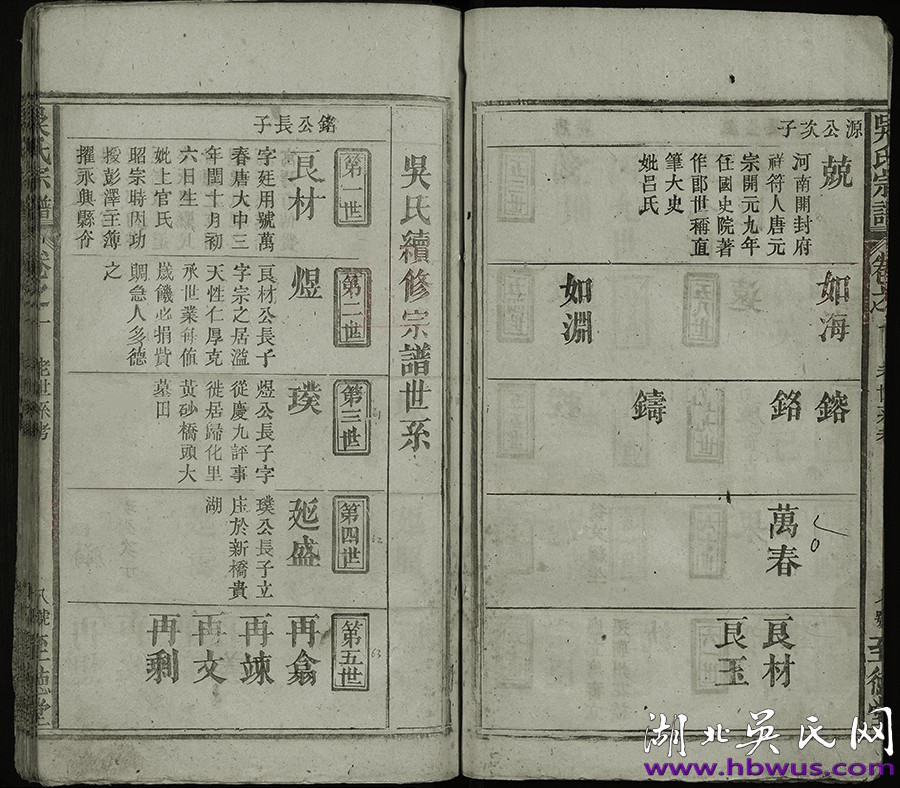 吳氏宗譜
卷之一
源公次子
兢
河南開封府
祥符人唐元
宗開元九年
任國史院著
作郎世稱直
筆大史
妣呂氏
如海
如淵
鎔
銘
鑄
萬春
良材
良玉
吳氏續修宗譜世系
銘公長子
第一世
良材
字廷用號萬
春唐大中三
年閏十月初
六日生
妣上官氏
昭宗時因功
授彭澤主簿
擢永興縣令
第二世
煜
良材公長子
字宗之居滋
天性仁厚克
承世業每值
歲饑必捐貲
賙急人多德
之
第三世
璞
煜公長子字
從慶九評事
徙居歸化里
黃砂橋頭大
墓田
第四世
延盛
璞公長子立
庄於新橋貴
湖
第五世
再翕
再竦
再文
再剩
吳氏宗譜
卷之一
老世系考
八號
至德堂
湖北吳氏网
www.hbwus.com